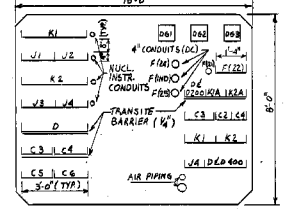 K1
J1 J2
K2
J3 J4
D
C3 C4
C5 C6
3'-0" (TYP.)
NUCL.
INSTR.
CONDUITS
TRANSITE
BARRIER (¼")
DG1 DG2 DG3
4" CONDUITS (DC)
1'-4"
F(IND)
F(22)
D200 K1A K2A
C3 C2 C4
K1 K2
J4 D&D 400
AIR PIPING
8'-0"